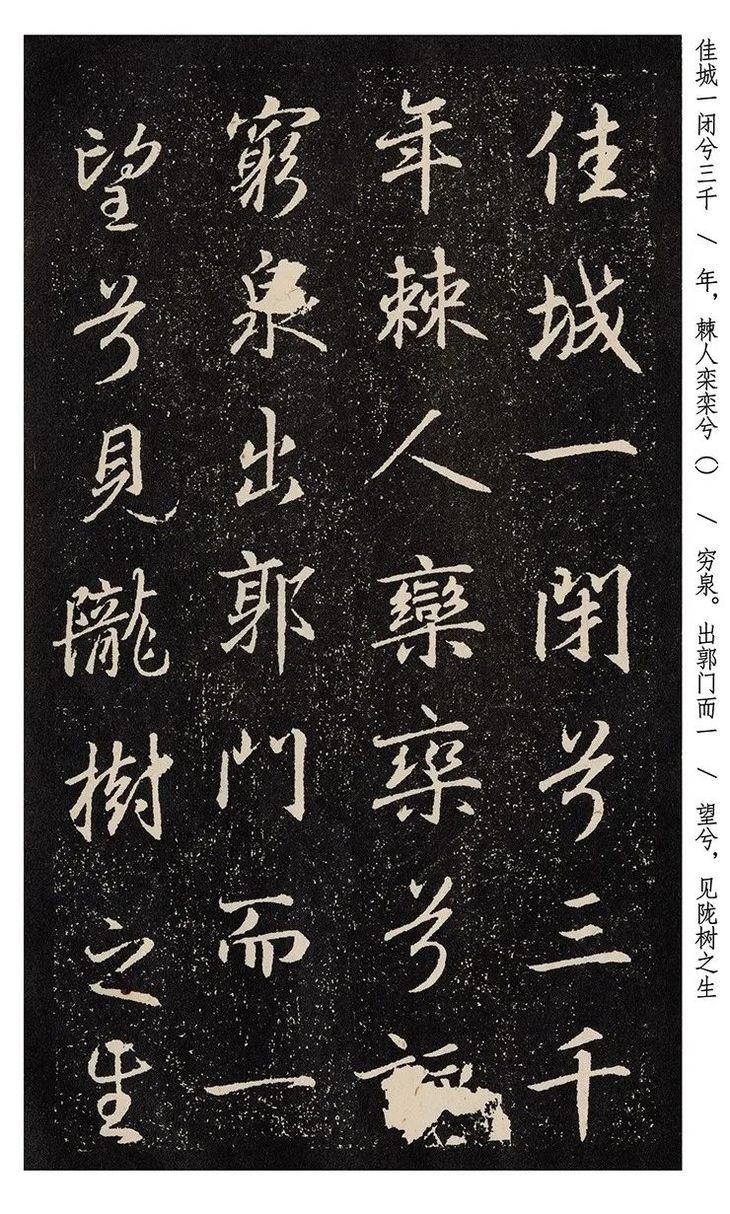 佳城一闭兮三千 / 年，棘人栾栾兮（） / 穷泉。出郭门而一 / 望兮，见陇树之生
佳城一閉兮三千
年棘人欒栾兮
窮泉出郭門而一
望兮見隴樹之生